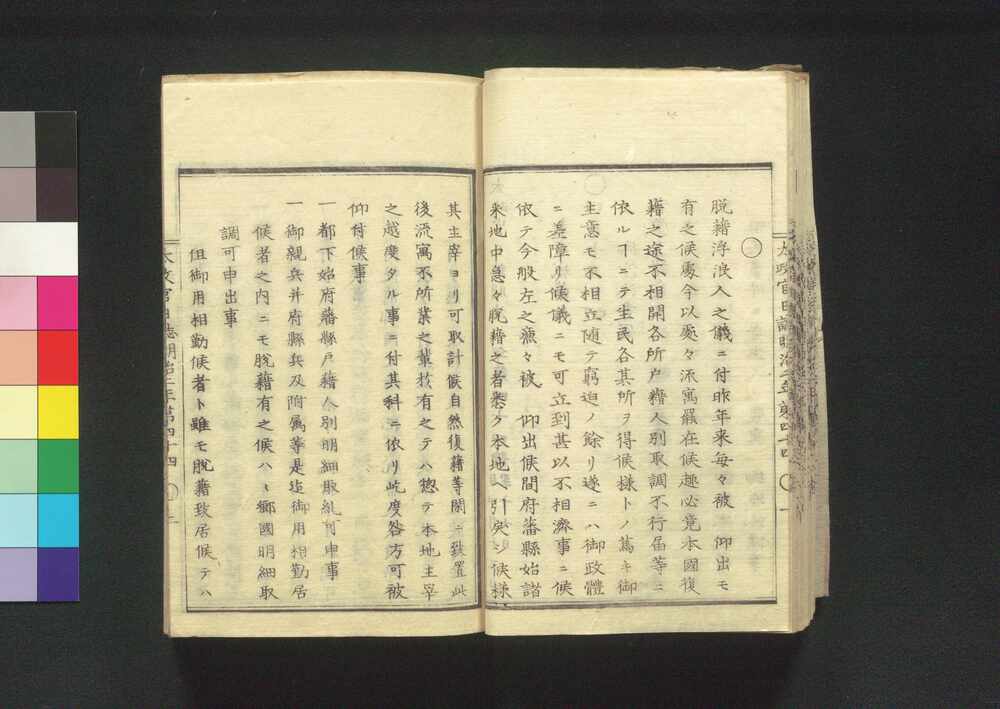 太政官日誌明治二年第四十四
〇
脱籍浮浪人之儀ニ付昨年来毎々被　仰出モ
有之候處今以處々流寓羈在候趣必竟本國復
籍之途不相開各所户籍人別取調不行届等ニ
依ルヿニテ生民各其所ヲ得候様トノ篤キ御
主意モ不相立随テ窮迫ノ餘リ遂ニハ御政體
ニ差障リ候儀ニモ可立到甚以不相濟事ニ候
依テ今般左之通々被　仰出候間府藩縣始諸
采地中急々脱籍之者悉ク本地ヘ引戾シ候様
其主宰ヨリ可取計候自然復籍等閑ニ致置此
後流寓不所業之輩於有之テハ惣テ本地主宰
之越度タル事ニ付其科ニ依リ屹度咎方可被
仰付候事
一都下始府藩縣户籍人別明細取糺可申事
一御親兵并府縣兵及附属等是迄御用相勤居
候者之内ニモ脱籍有之候ハヽ郷國明細取
調可申出事
但御用相勤候者ト雖モ脱籍致居候テハ
太政官日誌明治二年第四十四